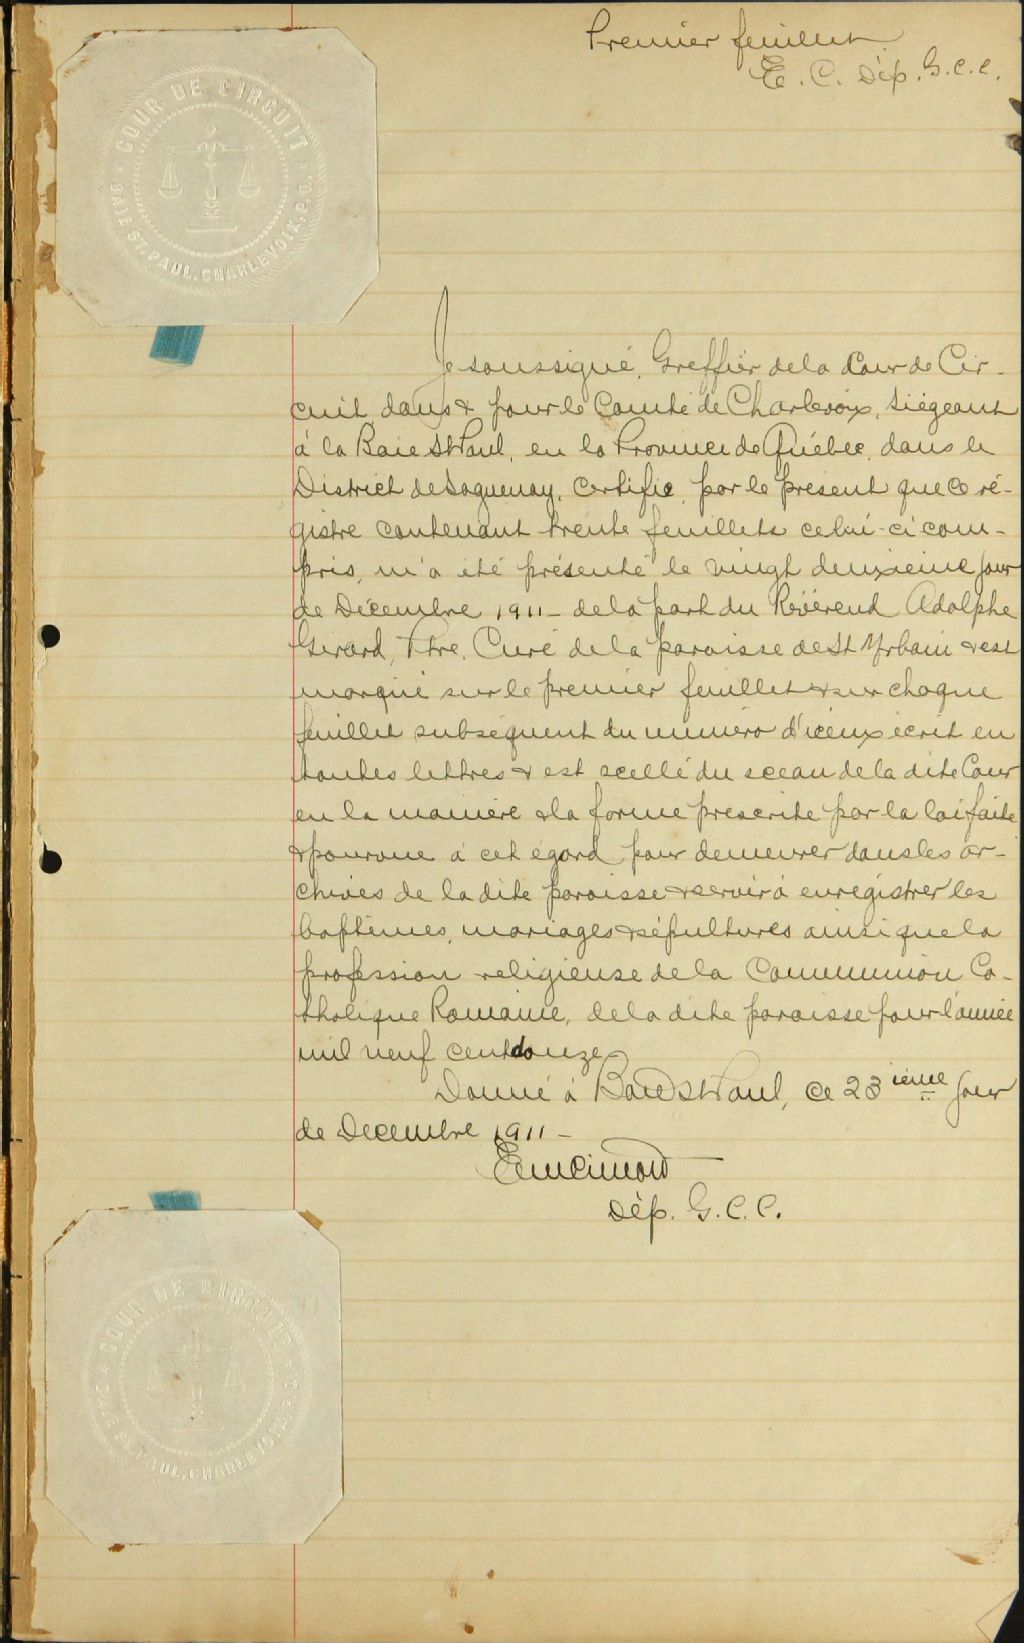 Premier feuillet
E. C. Dép. G. C. C.
COUR DE CIRCUIT
BAIE ST. PAUL, CHARLEVOIX, P.Q.
Je soussigné, Greffier de la Cour de Cir-
cuit dans & pour le Comté de Charlevoix, siégeant
à la Baie St Paul, en la Province de Québec, dans le
District de Saguenay, certifie par le présent que ce ré-
gistre contenant trente feuillets celui-ci com-
pris, m'a été présenté le vingt deuxième jour
de Décembre 1911 - de la part du Révérend Adolphe
Girard, Ptre. Curé de la paroisse de St Urbain & est
marqué sur le premier feuillet & sur chaque
feuillet subséquent du numéro d'iceux écrit en
toutes lettres & est scellé du sceau de la dite Cour
en la manière & la forme prescrite par la loi faite
& pourvue à cet égard pour demeurer dans les ar-
chives de la dite paroisse & servir à enregistrer les
baptêmes, mariages & sépultures ainsi que la
profession religieuse de la Communion Ca-
tholique Romaine, de la dite paroisse pour l'année
mil neuf cent douze
Donné à Baie St Paul, ce 23 ième jour
de Decembre 1911 -
Em Cimon
Dép. G. C. C.
COUR DE CIRCUIT
BAIE ST. PAUL, CHARLEVOIX, P.Q.